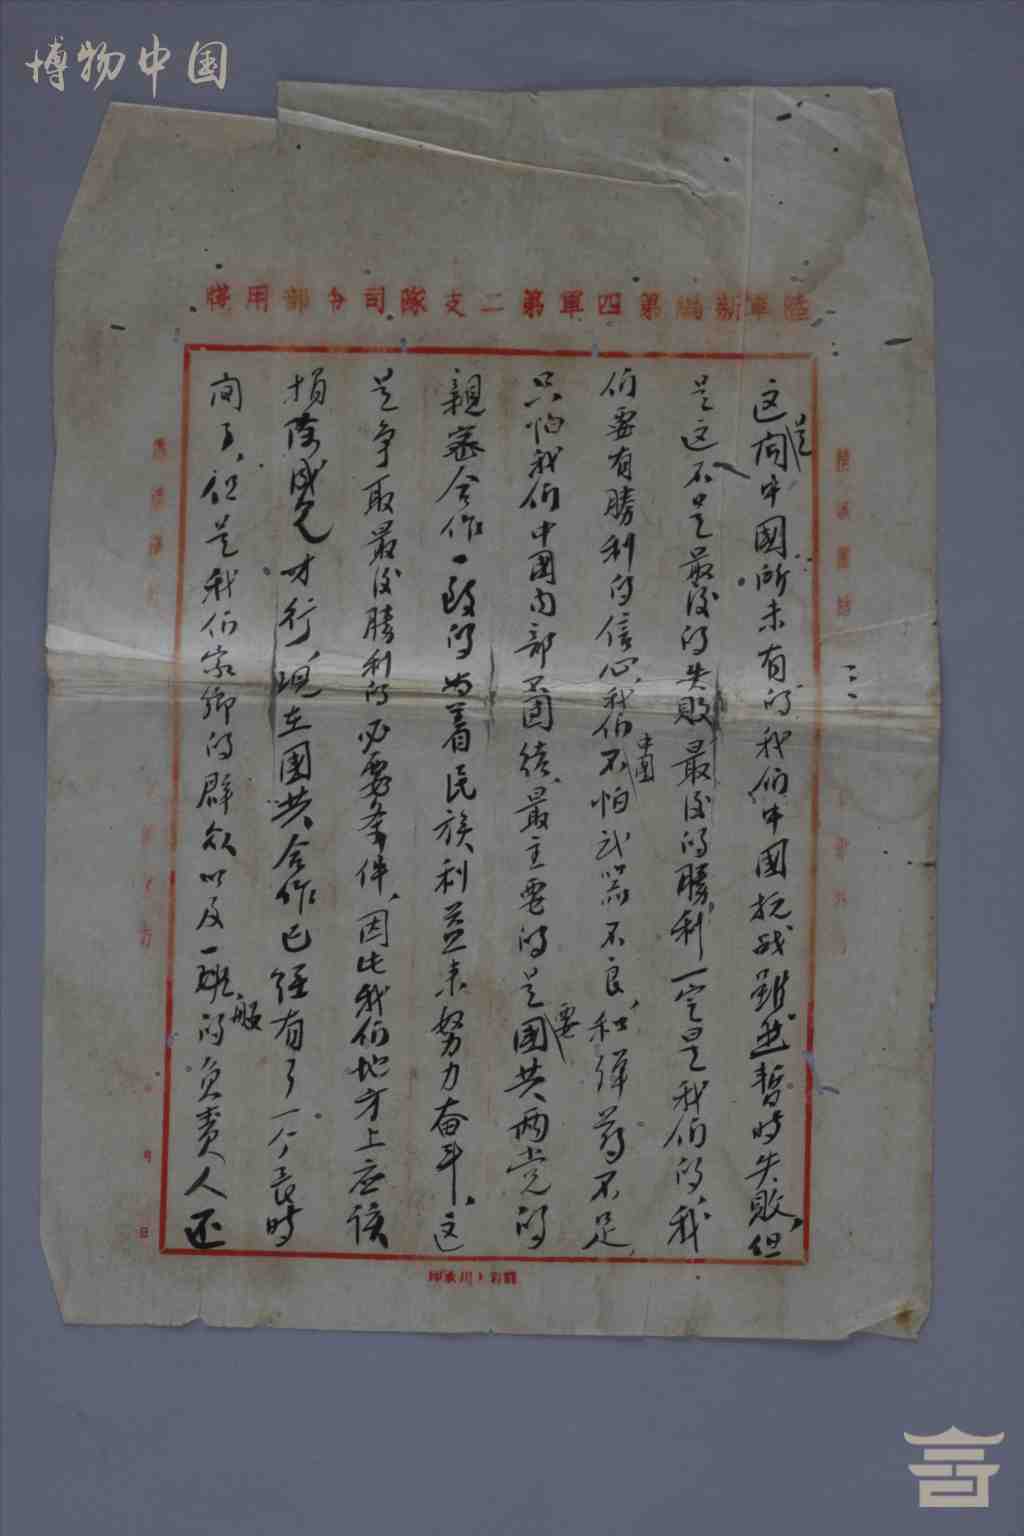 博物中国
陸軍新編第四軍第二支隊司令部用牋
這是向中國所未有的我们中國抗战雖然暫時失敗,但
是这不是最後的失敗最後的勝利一定是我们的,我
们要有勝利的信心,我们中國不怕武器不良,和弹药不足,
只怕我们中國内部不团结,最主要的是要國共两党的
親密合作一致的为着民族利益来努力奋斗,这
是争取最後勝利的必要条件,因此我们地方上应该
捐除成見才行,现在國共合作已經有了一个長時
间了,但是我们家鄉的群众以及一般的负责人还
三
月 日